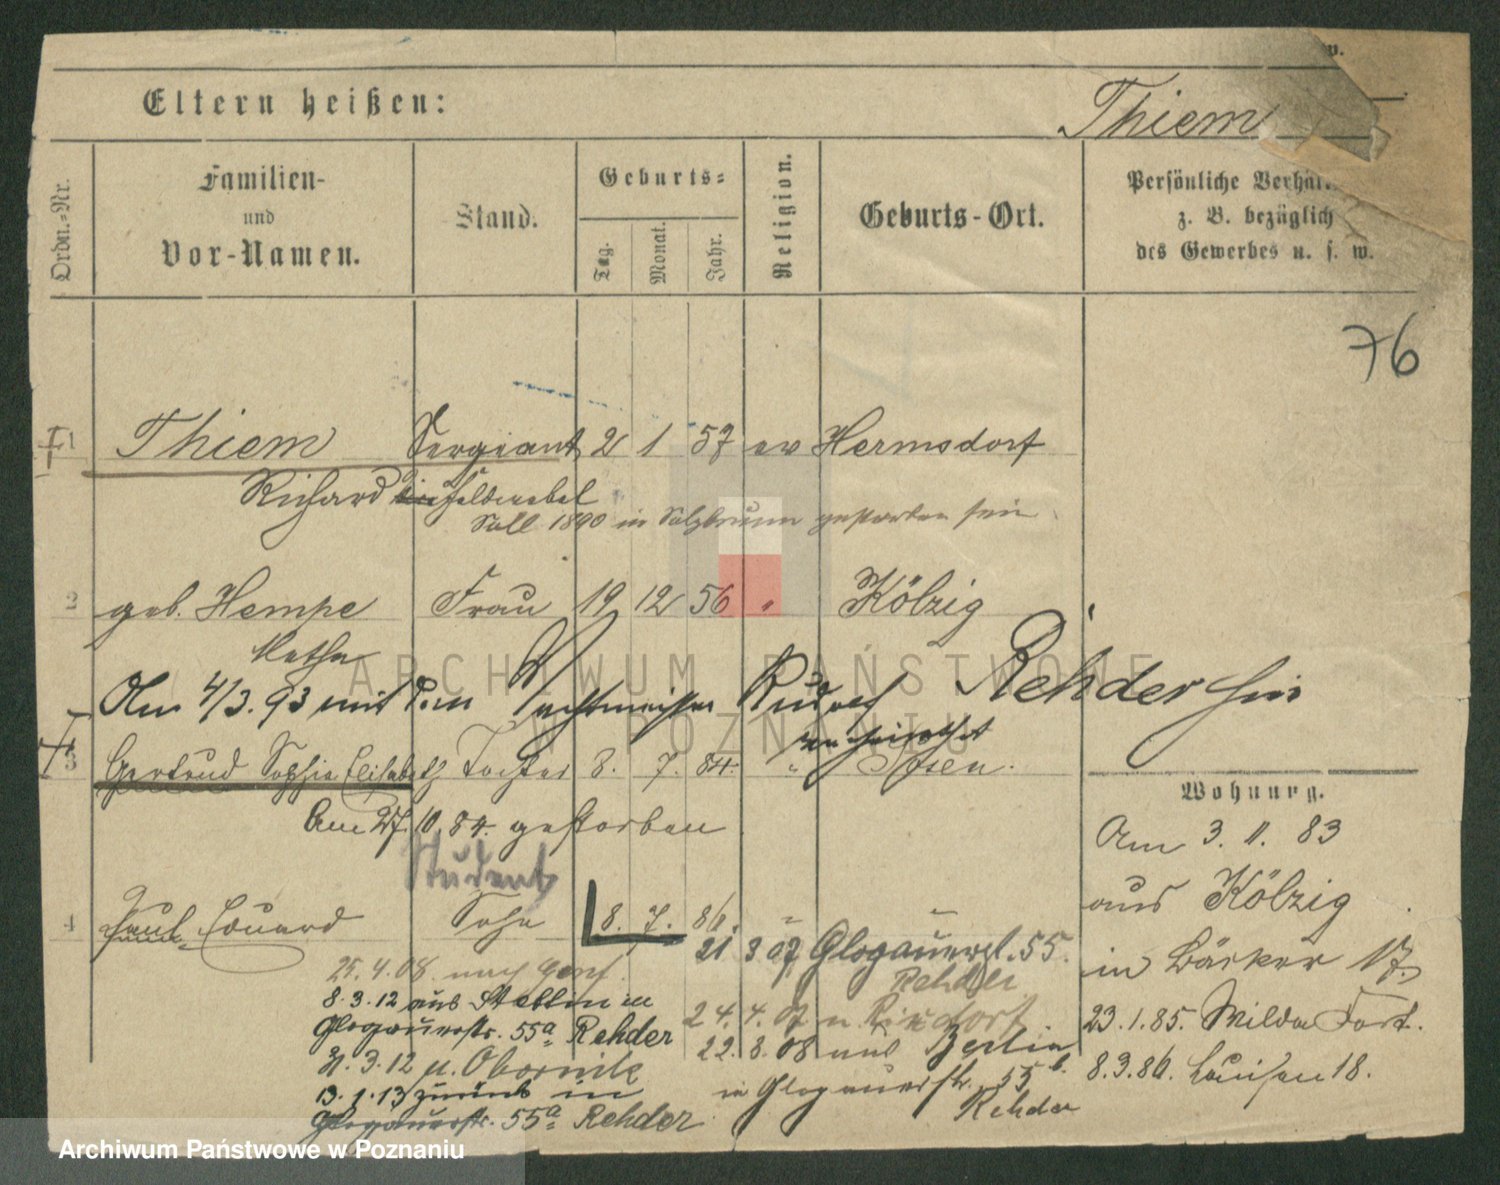 Eltern heißen:
Thiem
Ordn.-Nr.
Familien-
und
Vor-Namen.
Stand.
Geburts-
Tag.
Monat.
Jahr.
Religion.
Geburts-Ort.
Persönliche
z. B. bezüglich
des Gewerbes u. s. w.
76
1 Thiem Sergeant 2 1 57 ev Hermsdorf
Richard Feldwebel
Soll 1890 in Salzbrunn gestorben sein
2 geb. Hempe Frau 19 12 56 " Kölzig
Am 4/3.93 mit dem Wachtmeister Rudolf Rehder hier
verheirathet
3 Gertrud Sophie Elisabeth Tochter 8. 7. 84. " Posen.
Am 27. 10. 84. gestorben
Student
4 Paul Eduard Sohn 8. 7. 86. " "
21 3 07 Glogauerstr. 55.
Rehder
25.4.08. nach Genf.
8.3.12 aus Stettin in
Glogauerstr. 55a Rehder
24. 4. 07 n. Rixdorf
22. 8. 08 aus Berlin
in Glogauerstr. 55 b.
Rehder
21.3.12 n. Obornik
13.1.13 zurück in
Glogauerstr. 55a Rehder
Wohnung.
Am 3. 11. 83
aus Kölzig
in Bäcker 17.
23.1.85. Wilda Fort.
8.3.86. Louisen 18.
ARCHIWUM PAŃSTWOWE
W POZNANIU
Archiwum Państwowe w Poznaniu